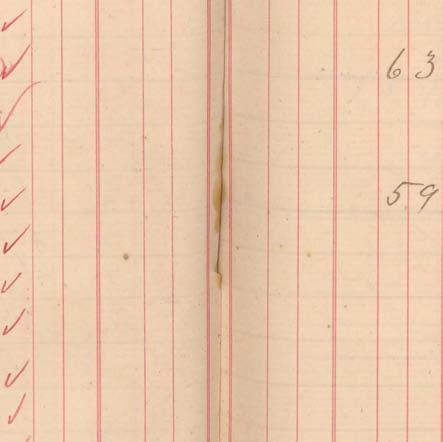 ✓
✓
✓
✓
✓
✓
✓
✓
✓
✓
63
59